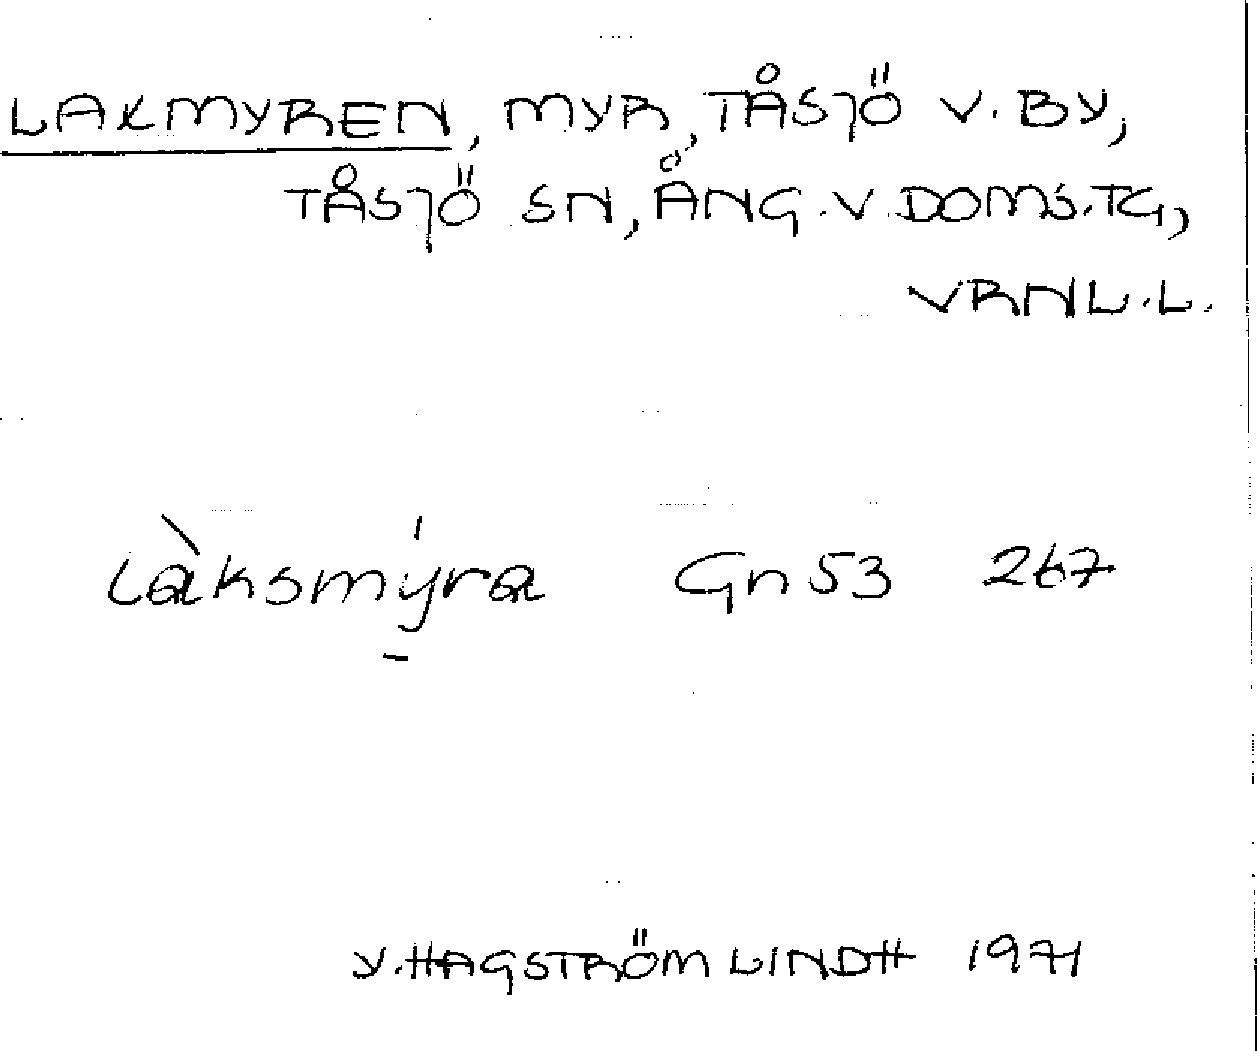 LAKMYREN, MYR, TÅSJÖ V. BY,
TÅSJÖ SN, ÅNG. V. DOMS. TG,
VRNL. L.
Làksmýra Gn 53 267
Y. HAGSTRÖM LINDH 1971